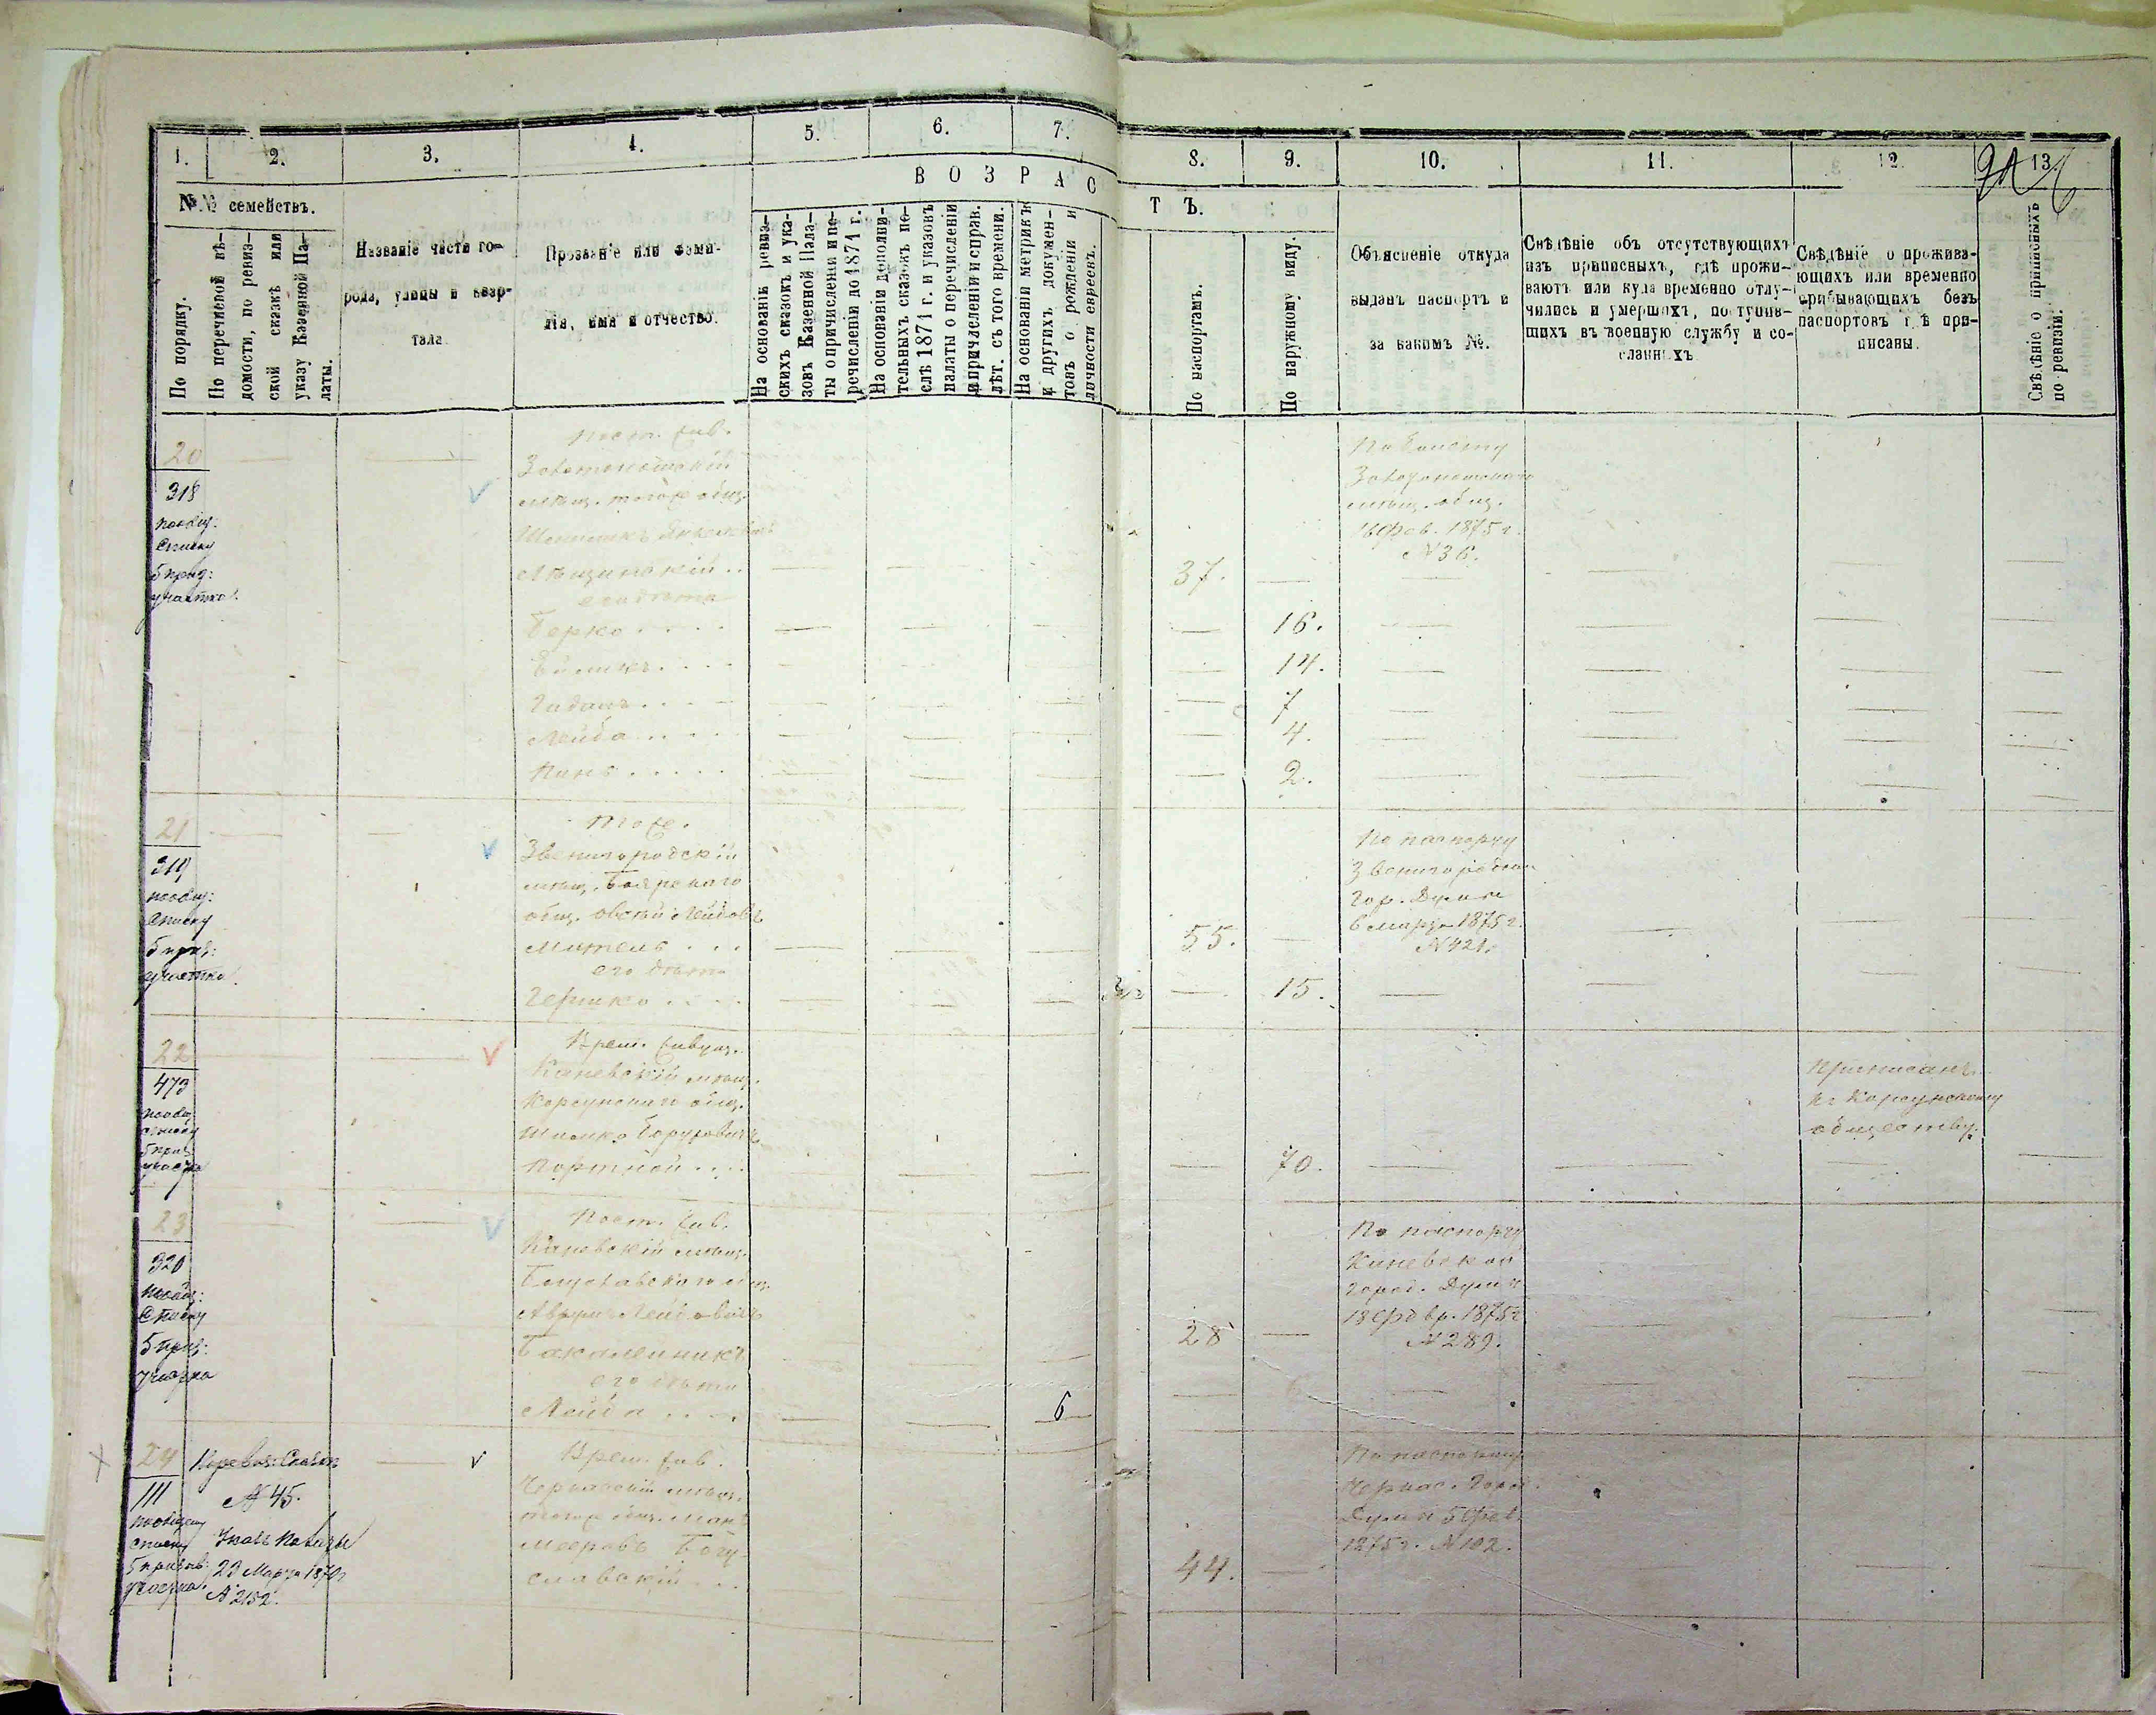 1. 2. 3. 4. 5. 6. 7. 8. 9. 10. 11. 12. 13.
В О З Р А С Т Ъ.
№№ семействъ.
По порядку.
По перечневой вѣ-
домости, по ревиз-
ской сказкѣ или
указу Казенной Па-
латы.
Названіе части го-
рода, улицы и квар-
тала.
Прозваніе или фами-
лія, имя и отчество.
На основаніи ревиз-
скихъ сказокъ и ука-
зовъ Казенной Пала-
ты о причисленіи и пе-
речисленіи до 1871 г.
На основаніи дополни-
тельныхъ сказокъ по-
слѣ 1871 г. и указовъ
палаты о перечисленіи
и причисленіи и справ.
лѣт. съ того времени.
На основаніи метрикъ
и другихъ докумен-
товъ о рожденіи и
личности евреевъ.
По паспортамъ.
По наружному виду.
Объясненіе откуда
выданъ паспортъ и
за какимъ №.
Свѣдѣніе объ отсутствующихъ
изъ приписныхъ, гдѣ прожи-
ваютъ или куда временно отлу-
чились и умершихъ, поступив-
шихъ въ военную службу и со-
сланныхъ
Свѣдѣніе о прожива-
ющихъ или временно
прибывающихъ безъ
паспортовъ гдѣ при-
писаны.
Свѣдѣніе о приписныхъ
по ревизіи.
20
318
по общ:
списку
5 приз:
участка.
Пост. жив.
мѣщ. тогоже общ.
Лещинскій . .
его дѣти
37.
По билету
мѣщ. общ.
16 Фев. 1875 г.
№ 36.
Берко . . . . 16.
14.
7
Лейба . . . . 4.
Пинь . . . . . 2.
21
319
по общ:
списку
5 приз:
участка.
Тоже.
Звенигородскій
мѣщ. Боярскаго
общ. Овсій Лейбовъ
Мительъ . . . 55.
его дѣти
Гершко . . . . 15.
По паспорту
Звенигородской
Гор. Думы
6 марта 1875 г.
№ 421.
22
473
по общ:
списку
5 приз:
участка
Врем. живущ.
Каневскій мѣщ.
Корсунскаго общ.
Шмилко Боруховичъ
Портной . . . . 70.
Приписанъ
къ Корсунскому
обществу.
23
320
по общ:
списку
5 приз:
участка
Пост. жив.
Каневскій мѣщ.
Богуславскаго общ.
Аврумъ Лейбовичъ
Бакалейникъ 28
его дѣти
Лейба . . . . 6
По паспорту
Каневской
Город. Думы
18 февр. 1875 г.
№ 289.
24
111
по общему
списку
5 призыв:
участка.
По ревиз: Сказкѣ
№ 45.
Указъ Палаты
23 Марта 1870 г
№ 2152.
Врем. жив.
Черкасскій мѣщ.
тогоже общ. Манъ
Мееровъ Богу
славскій . . . 44.
По паспорту
Черкас. Город.
Думы 5 Фев.
1875 г. № 102.